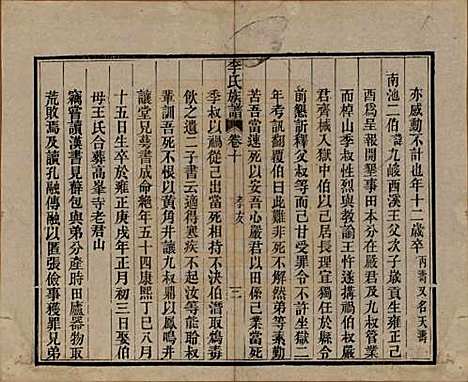 亦感動不許也年十二歲卒丙壽又名天壽
南池二伯諱九畹西漢王父次子歲貢生雍正己
酉爲呈報開墾事田本分在嚴君及九叔管業
而棹山季叔性烈與教諭王忤搆禍伯叔嚴
君齊械入獄中伯以己居長理宜入獄具詞縣令
前懇訴釋父叔等而自代縣令不許坐獄二
年考訊苦刑伯曰此難非死不解弟等乘勤
苦吾當速死以妥吾心嚴君以田係己業當死
季叔以禍從己出當死相爭不決伯私取鴆毒
飲之遺二子書云適可而止不起矣汝等能聽叔
輩訓吾死不恨以黃角井讓九叔以鳳鳴井
讓堂兄爲書成命絕年五十四康熙丁巳八月
十五日生卒於雍正庚戌年正月初三日娶伯
母王氏合葬高峯寺老君山
竊嘗讀漢書見群包與弟分產時田廬器物取
荒敗焉及讀孔融傳融以匿張儉事獲罪兄弟
李氏族譜
卷十
孝友
三